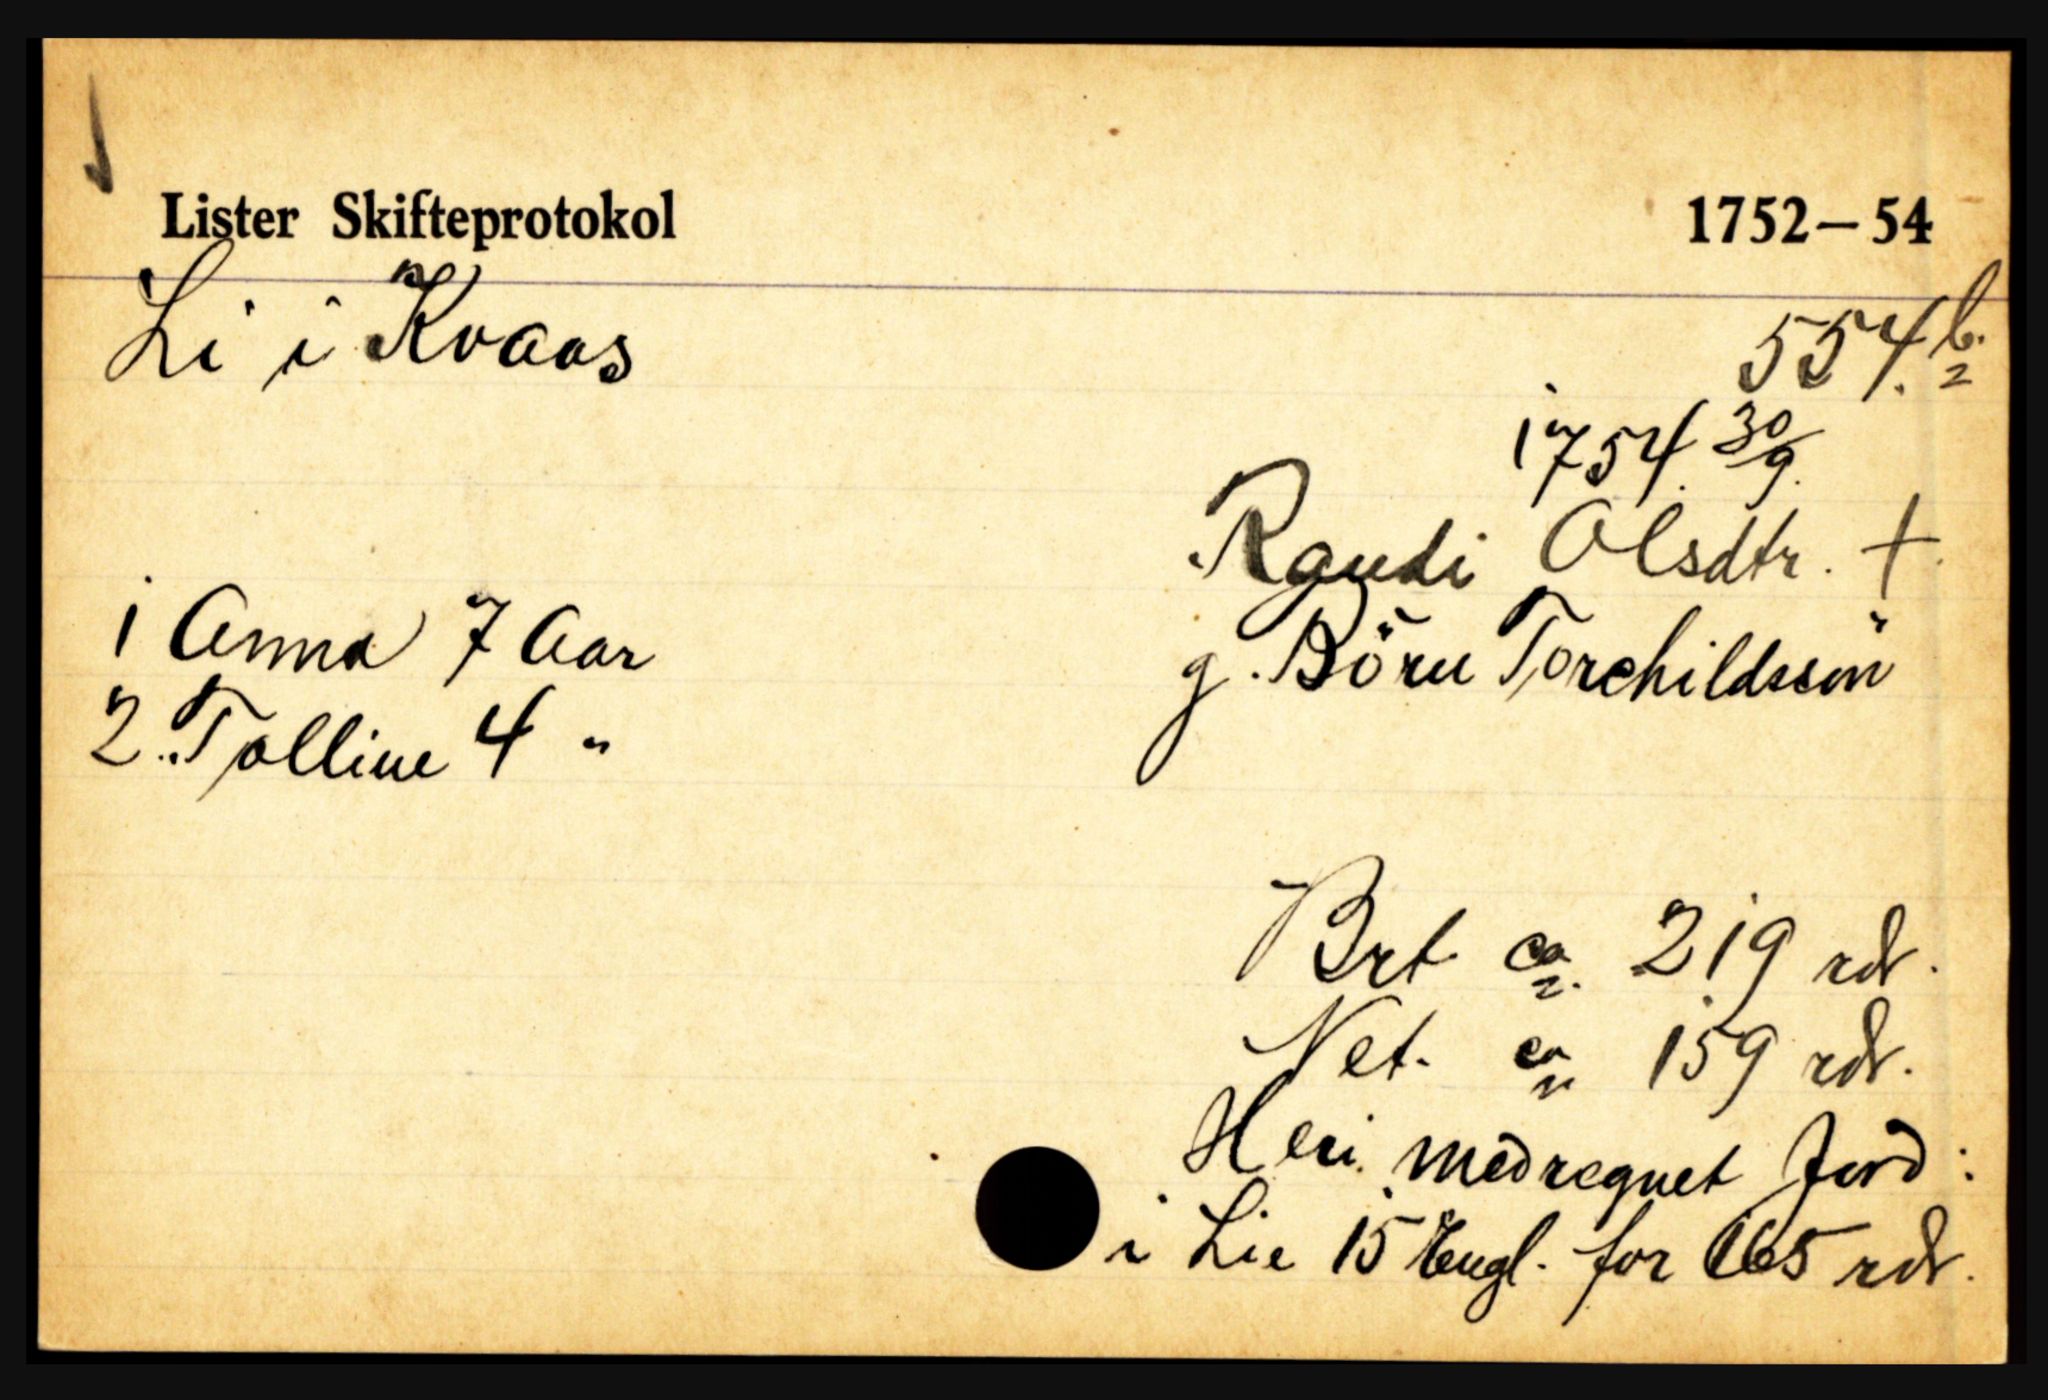 Lister Skifteprotokol 1752-54
Li i Kvaas
554.b.
1754. 30/9.
Randi Olsdtr. †.
1 Anna 7 Aar
g. Böru Torchildssön
2. Tolline 4 "
Brt ca. 219 rdr.
Net. ca 159 rdr.
Heri medregnet Jord:
i Lie 15 Engl. for 165 rdr.